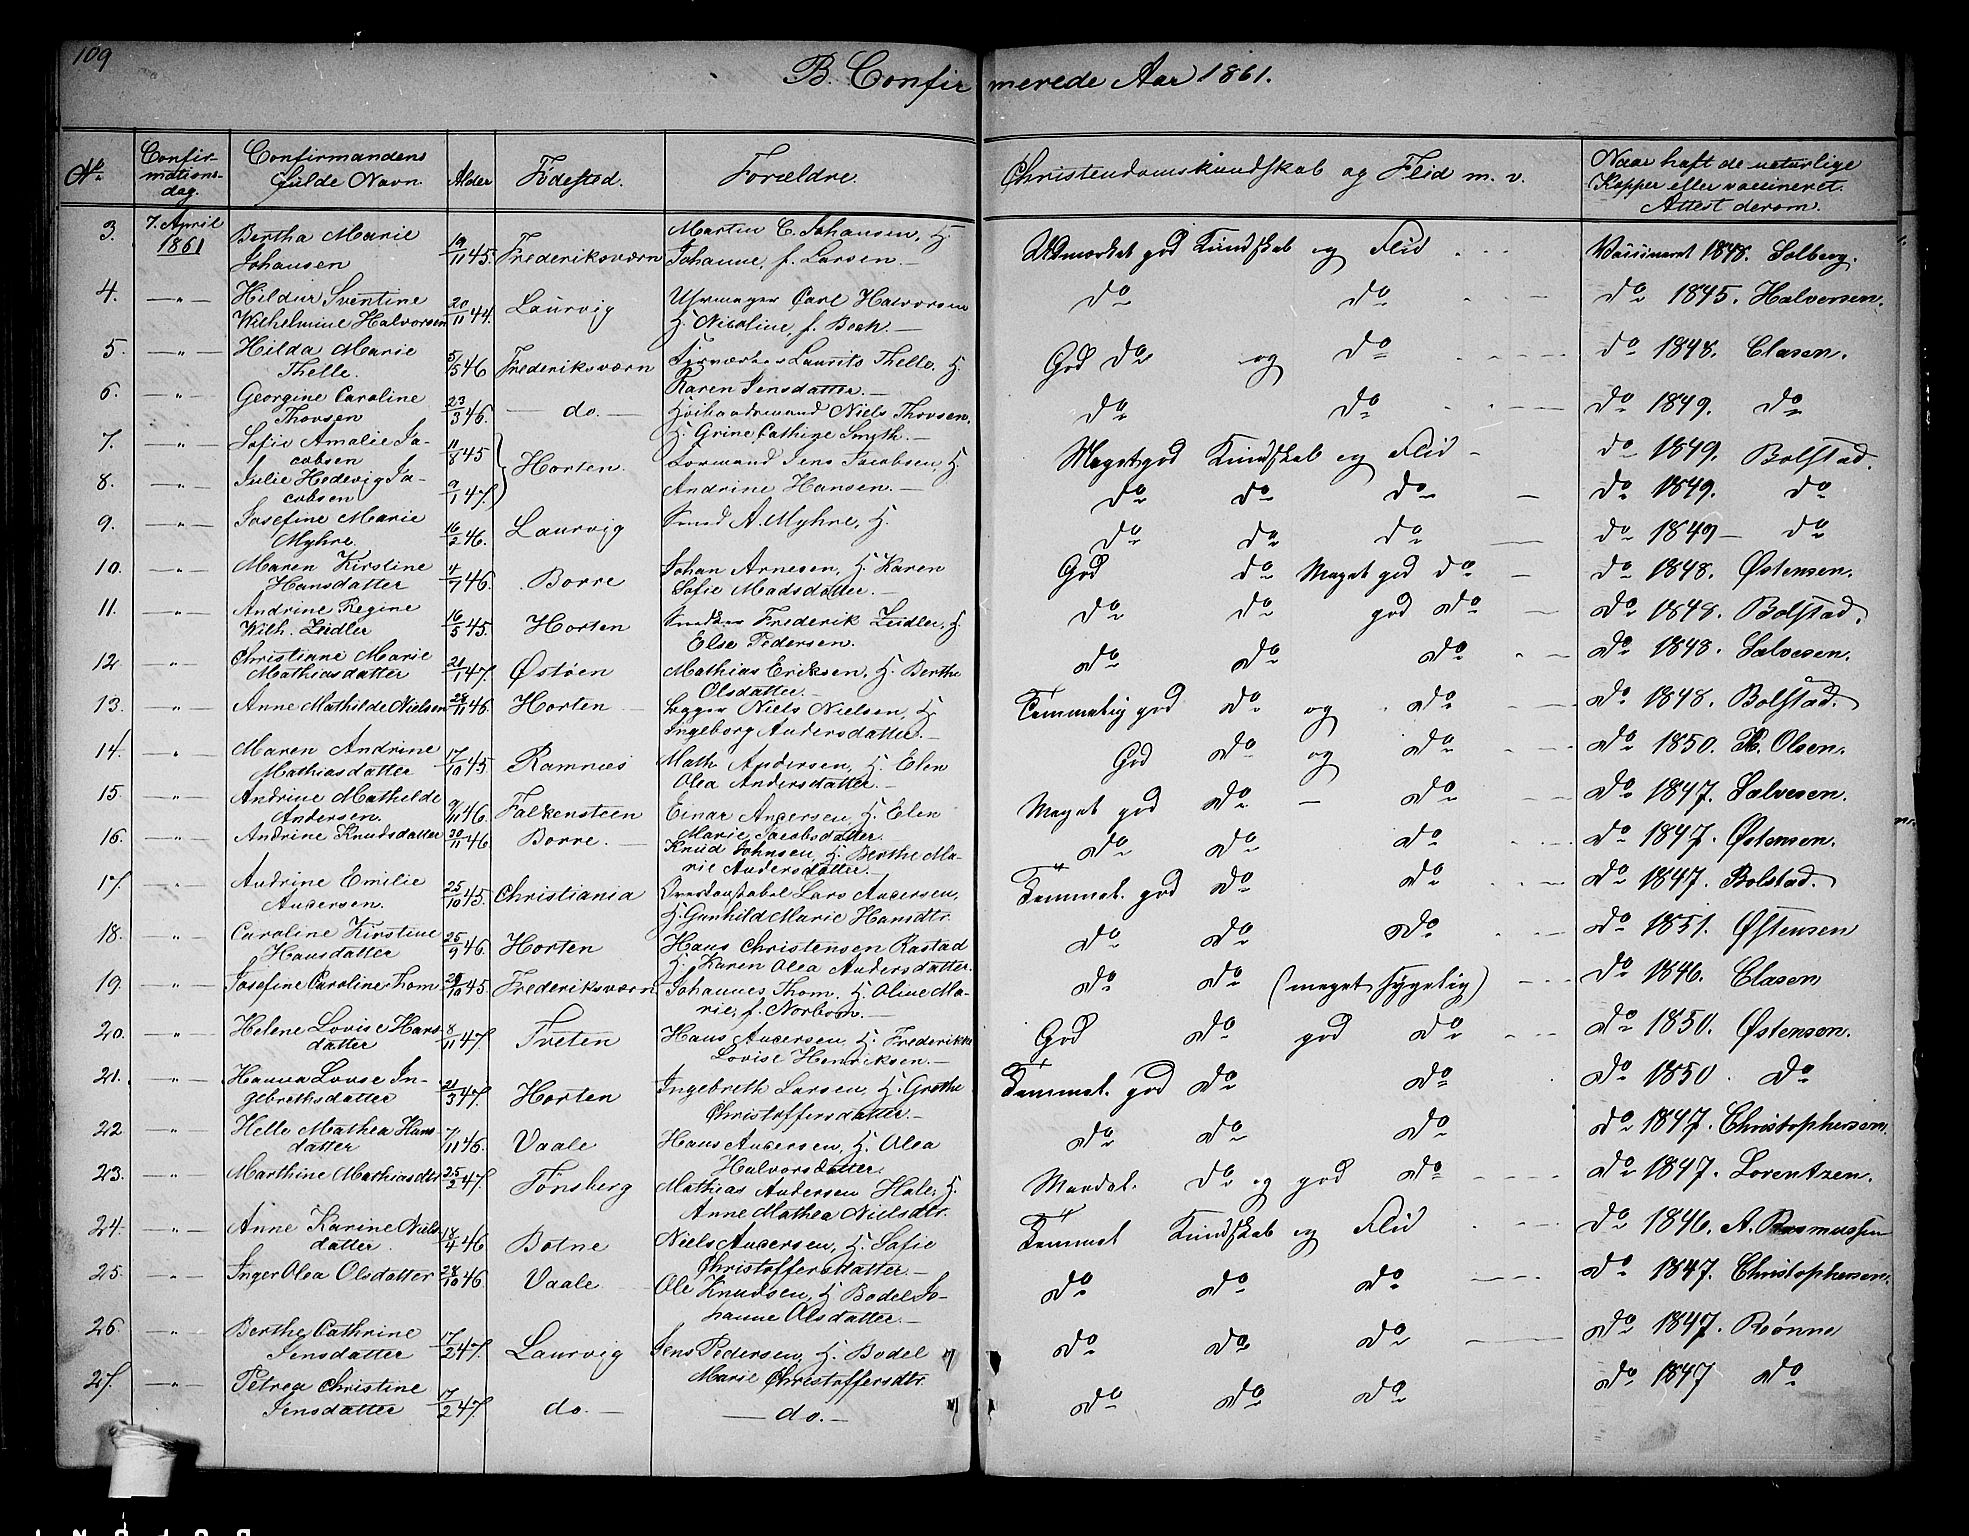 109
B. Confirmerede Aar 1861.
No. Confirmationsdag. Confirmandens fulde Navn. Alder Fødested. Forældre. Christendomskundskab og Flid m. v. Naar haft de naturlige Kopper eller vaccineret. Attest derom.
3. 7. April 1861 Bertha Marie Johansen 19/11 45. Frederiksværn Martin C. Johansen, H. Johanne, f. Larsen.— Udmærket god Kundskab og Flid Vaccineret 1848. Solberg.
4. —"— Hildur Sventine Wilhelmine Halvorsen 20/11 44. Laurvig Uhrmager Carl Halvorsen H. Nicoline, f. Bock.— do do do 1845. Halversen.
5. —"— Hilda Marie Thelle. 5/5 46 Frederiksværn Laurits Thelle, H. Karen Jensdatter.— God do og do do 1848. Clasen.
6. —"— Georgine Caroline Thorsen 23/3 46. —do.— Niels Thorsen, H. Grine Cathine Smyth.— do do do 1849. do
7. —"— Sofie Amalie Jacobsen 11/8 45 Horten. Jens Jacobsen, H. Meget god Kundskab og Flid do 1849. Bolstad.
8. —"— Julie Hedevig Jacobsen 9/1 47. Andrine Hansen.— do do do do 1849. do
9. —"— Josefine Marie Myhre. 16/2 46. Laurvig Smed A. Myhre, H. do do do do 1849— do
10. —"— Maren Kirstine Hansdatter 4/7 46. Borre Johan Arnesen, H. Karen Sofie Madsdatter.— God do Meget god do do 1848. Østensen.
11. —"— Andrine Regine Wilh. Zeidler 16/5 45. Horten Frederik Zeidler, H. Else Pedersen. do do god do do 1848. Bolstad.
12. —"— Christianne Marie Mathiasdatter 21/1 47. Østøen Mathias Eriksen, H. Berthe Olsdatter.— do do do do 1848. Salvesen.
13. —"— Anne Mathilde Nielsen 28/11 46. Horten Niels Nielsen, H. Ingeborg Andersdatter.— Temmelig god do og do do 1848. Bolstad.
14. " Maren Andrine Mathiasdatter 17/10 45 Ramnæs Math. Andersen, H. Elen Olea Andersdatter.— God do og do do 1850. H. Olsen.
15. —"— Andrine Mathilde Andersen. 9/11 46. Falkensteen Einar Andersen, H. Elen Marie Jacobsdatter. Meget god do — do do 1847. Salvesen.
16. —"— Andrine Knudsdatter 20/11 46 Borre.— Knud Johnsen, H. Berthe Marie Andersdatter.— do do do do 1847. Østensen.
17. " Andrine Emilie Andersen. 25/10 45. Christiania Lars Andersen, H. Gunhild Marie Hansdtr. Temmel. god do do do 1847. Bolstad.
18. " Caroline Kirstine Hansdatter 25/9 46. Horten Hans Christensen Rastad H. Karen Olea Andersdatter. do do do do 1851. Østensen
19. " Josefine Caroline Thom 29/10 45. Frederiksværn Johannes Thom, H. Oline Marie, f. Norbom.— do do (meget sygelig) do 1846. Clasen
20. " Helene Lovise Hansdatter 8/11 47. Tveten Hans Andersen, H. Frederikke Lovise Henriksen.— God do god do do 1850. Østensen.
21. " Hanna Lovse Ingebrethsdatter 21/3 47. Horten Ingebreth Larsen, H. Grethe Christoffersdatter.— Temmel. god do do do 1850. do
22 " Helle Mathea Hansdatter 7/11 46. Vaale Hans Andersen, H. Olea Halvorsdatter. do do do do 1847. Christophersen.
23. —"— Marthine Mathiasdtr 25/2 47. Tønsberg Mathias Andersen Hale, H. Anne Mathea Nielsdtr. Maadel. do og god do do 1847. Lorentzen.
24. —"— Anne Karine Nielsdatter. 18/4 46 Botne Niels Andersen, H. Sofie Christoffersdatter.— Temmel Kundskab og Flid do 1846. A. Rasmussen
25. —"— Inger Olea Olsdatter 28/10 46 Vaale Ole Knudsen, H. Bodel Johanne Olsdatter.— do do do do 1847. Christophersen.
26. —"— Berthe Cathrine Jensdatter 17/2 47. Laurvig Jens Pedersen, H. Bodel Marie Christoffersdtr. do do do do 1847. Rønne
27. —"— Petrea Christine Jensdatter 17/2 47. do.— —do.— do do do do 1847 do